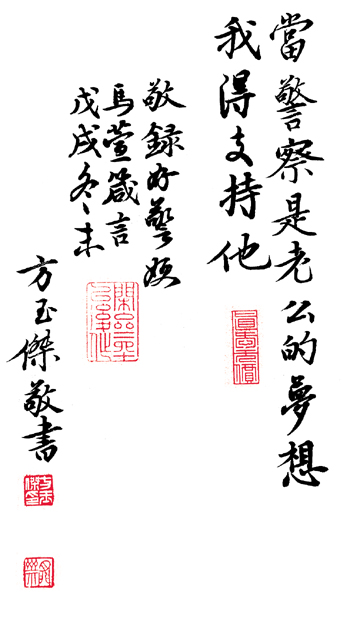 當警察是老公的夢想
我得支持他
敬錄好警嫂
馬萱箴言
戊戌冬冬末
方玉傑敬書